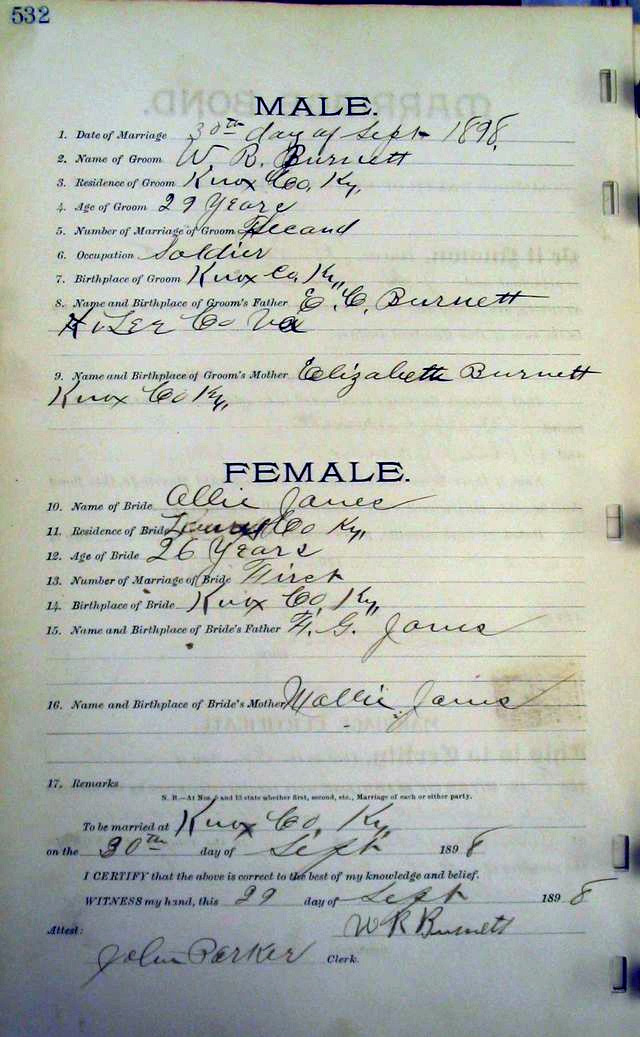 532
MALE.
1. Date of Marriage 30th day of Sept 1898,
2. Name of Groom W. R. Burnett
3. Residence of Groom Knox Co, Ky,
4. Age of Groom 29 Years
5. Number of Marriage of Groom Second
6. Occupation Soldier
7. Birthplace of Groom Knox Co, Ky,,
8. Name and Birthplace of Groom's Father E. C. Burnett
Lee Co Va
9. Name and Birthplace of Groom's Mother Elizabeth Burnett
Knox Co Ky,
FEMALE.
10. Name of Bride Ollie Jones
11. Residence of Bride Co Ky,,
12. Age of Bride 26 Years
13. Number of Marriage of Bride First
14. Birthplace of Bride Knox Co, Ky,,
15. Name and Birthplace of Bride's Father F. G. Jones
16. Name and Birthplace of Bride's Mother Mollie Jones
17. Remarks
N. B.—At Nos. 5 and 13 state whether first, second, etc., Marriage of each or either party.
To be married at Knox Co, Ky,
on the 30th day of Sept 1898
I CERTIFY that the above is correct to the best of my knowledge and belief.
WITNESS my hand, this 29 day of Sept 1898
Attest: W R Burnett
John Parker Clerk.